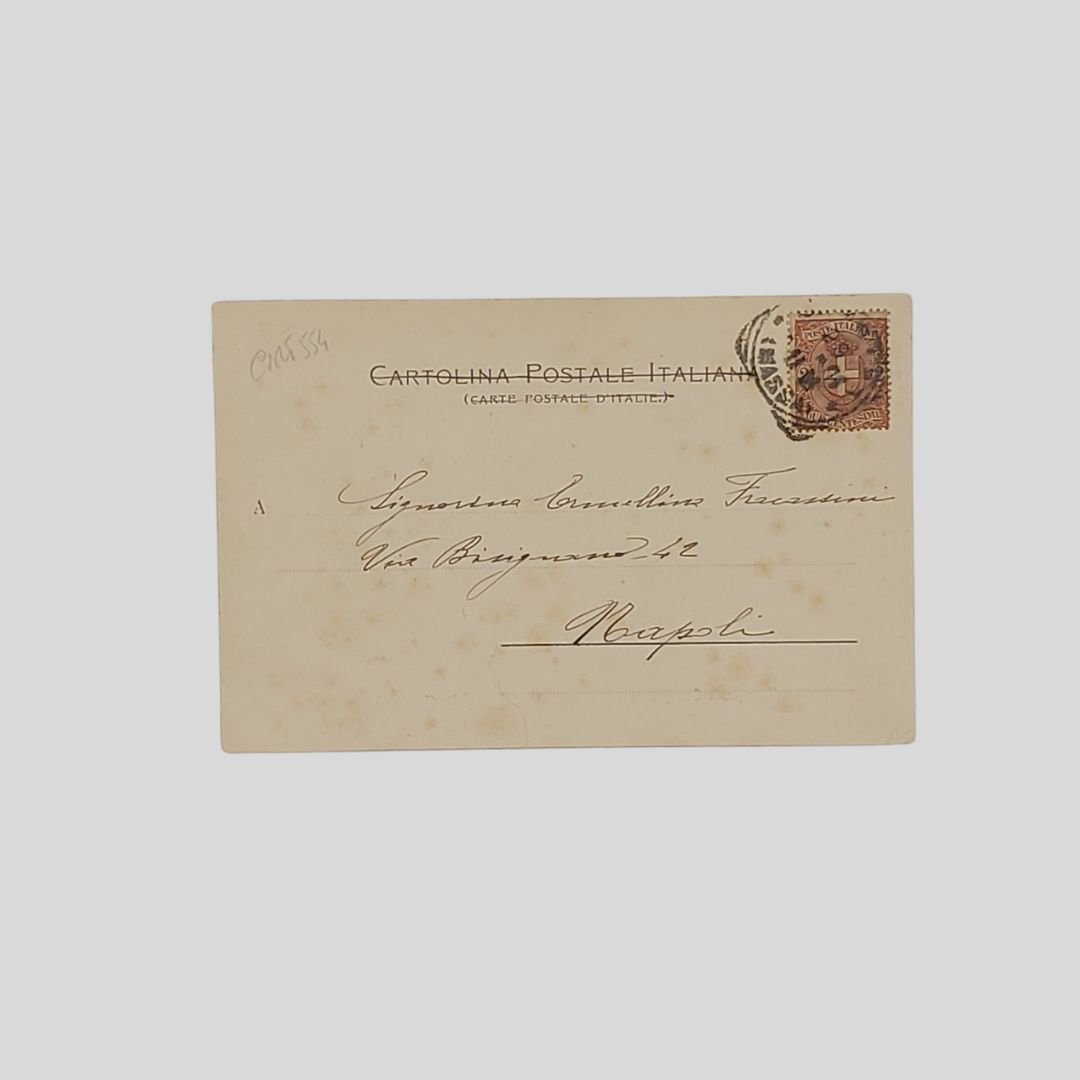 CARTOLINA POSTALE ITALIAN
(CARTE POSTALE D'ITALIE.)
POSTE ITALI
2 2
CENTESIMI
A
Signorina Ermellina Fracassini
Via Bisignano 42
Napoli